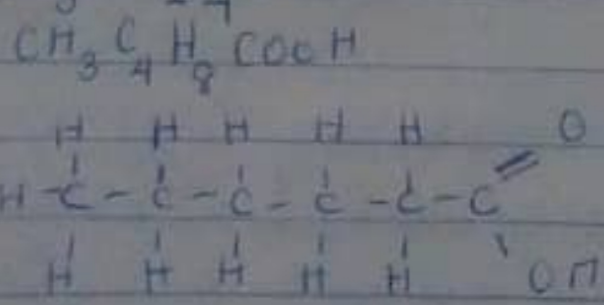 CH₃C₄H₈COOH
H H H H H O
H-C-C-C-C-C-C
H H H H H OH